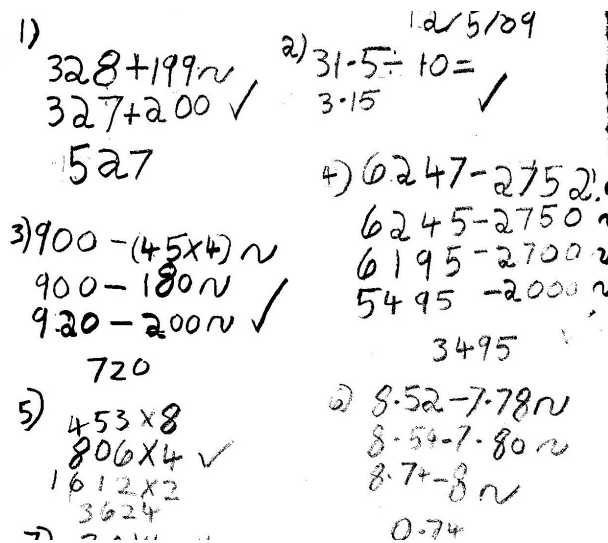 12/5/09
1)
328+199~
327+200 ✓
527
2) 31·5÷10=
3·15 ✓
3) 900-(45×4)~
900-180~
920-200~ ✓
720
4) 6247-2752
6245-2750~
6195-2700~
5495-2000~
3495
5) 453×8
806×4 ✓
1612×2
3624
6) 8·52-7·78~
8·54-7·80~
8·74-8~
0·74